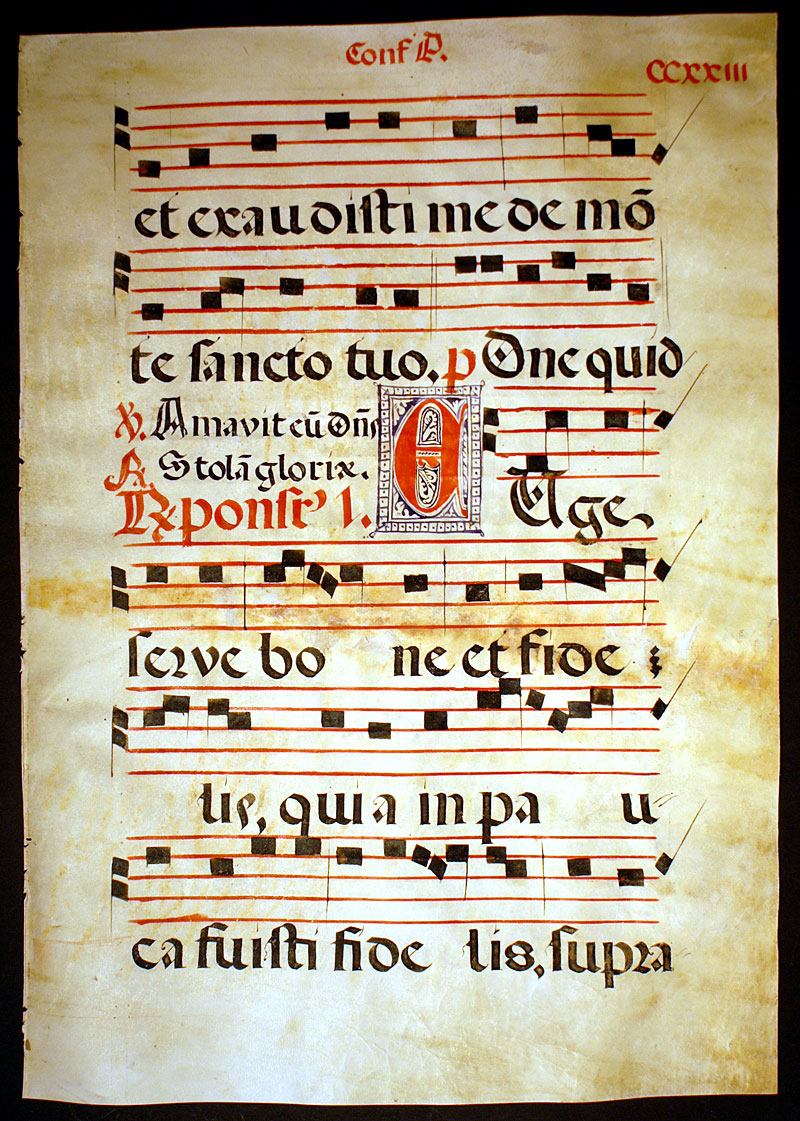 Conf P.
CCXXIII
et exaudisti me de mõ
te sancto tuo. p Dne quid
℣. Amavit eũ Dñs
℟. Stolã gloriæ.
Rponsr' 1.
E Uge
serve bo ne et fide
lis, quia in pau
ca fuisti fide lis, supra